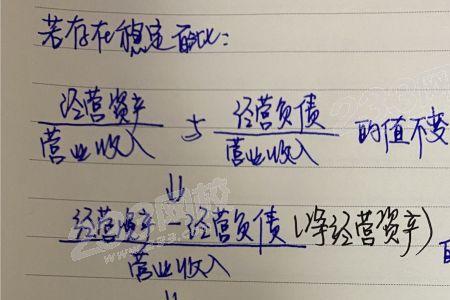 若存在稳定百分比：
经营资产 与 经营负债 的值不变
营业收入 营业收入
⇓
经营资产-经营负债(净经营资产)
营业收入